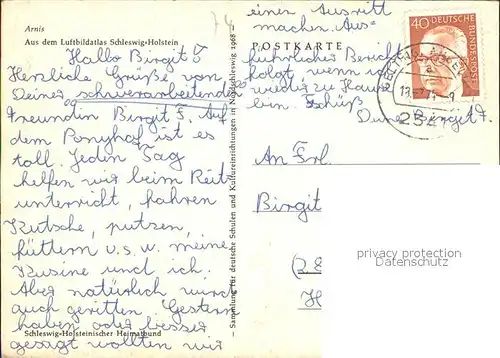 74
Arnis
Aus dem Luftbildatlas Schleswig-Holstein
Hallo Birgit!
Herzliche Grüße von
Deiner schwerarbeitenden
Freundin Birgit F. Auf
dem Ponyhof ist es
toll. Jeden Tag
helfen wir beim Reit
unterricht, fahren
Kutsche, putzen,
füttern u.s.w. meine
Kusine und ich.
Aber natürlich wird
auch geritten Gestern
haben oder besser
gesagt wollten wir
Schleswig-Holsteinischer Heimatbund
– Sammlung für deutsche Schulen und Kultureinrichtungen in Nordschleswig 1968 –
einen Ausritt
machen. Aus-
POSTKARTE
führlicher Bericht
folgt wenn ich
wieder zu Hause
bin. Tschüß
Deine Birgit F.
40 DEUTSCHE BUNDESPOST
An Frl.
Birgit
privacy protection
watermark